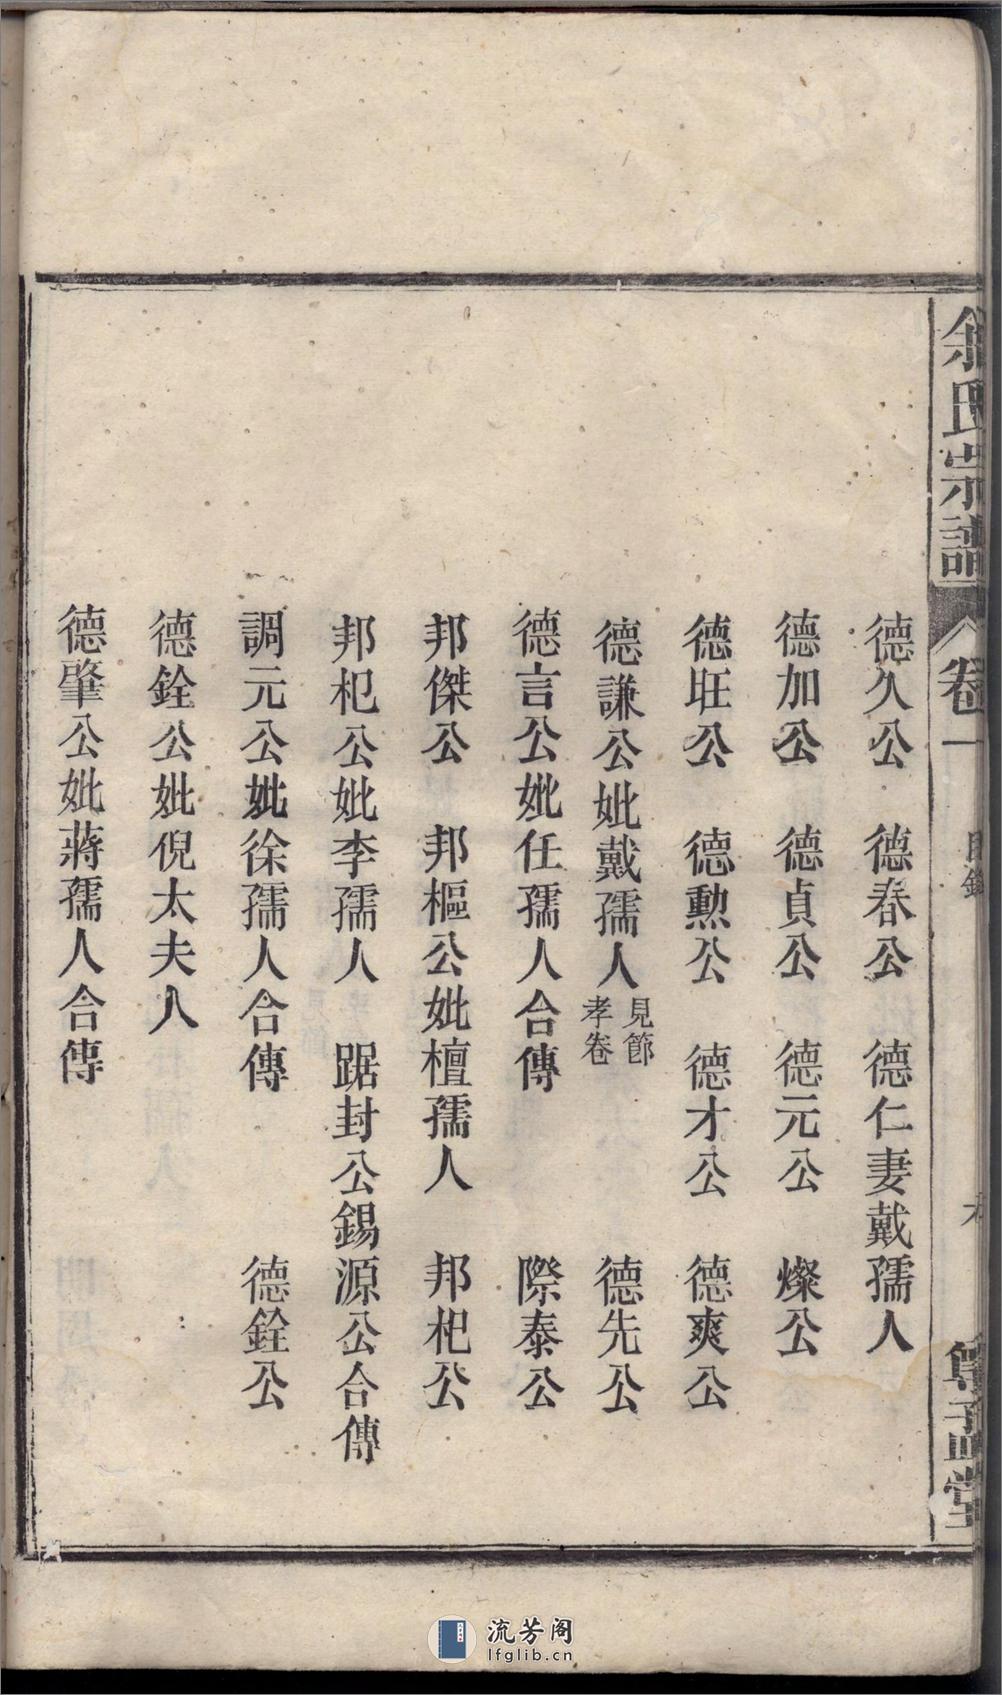 氏宗譜 卷一 目錄
德久公 德春公 德仁妻戴孺人
德加公 德貞公 德元公 燦公
德旺公 德勲公 德才公 德爽公
德謙公妣戴孺人見節孝卷 德先公
德言公妣任孺人合傳 際泰公
邦傑公 邦樞公妣檀孺人 邦杞公
邦杞公妣李孺人 踞封公錫源公合傳
調元公妣徐孺人合傳 德銓公
德銓公妣倪太夫人
德肇公妣蔣孺人合傳
流芳阁
lfglib.cn